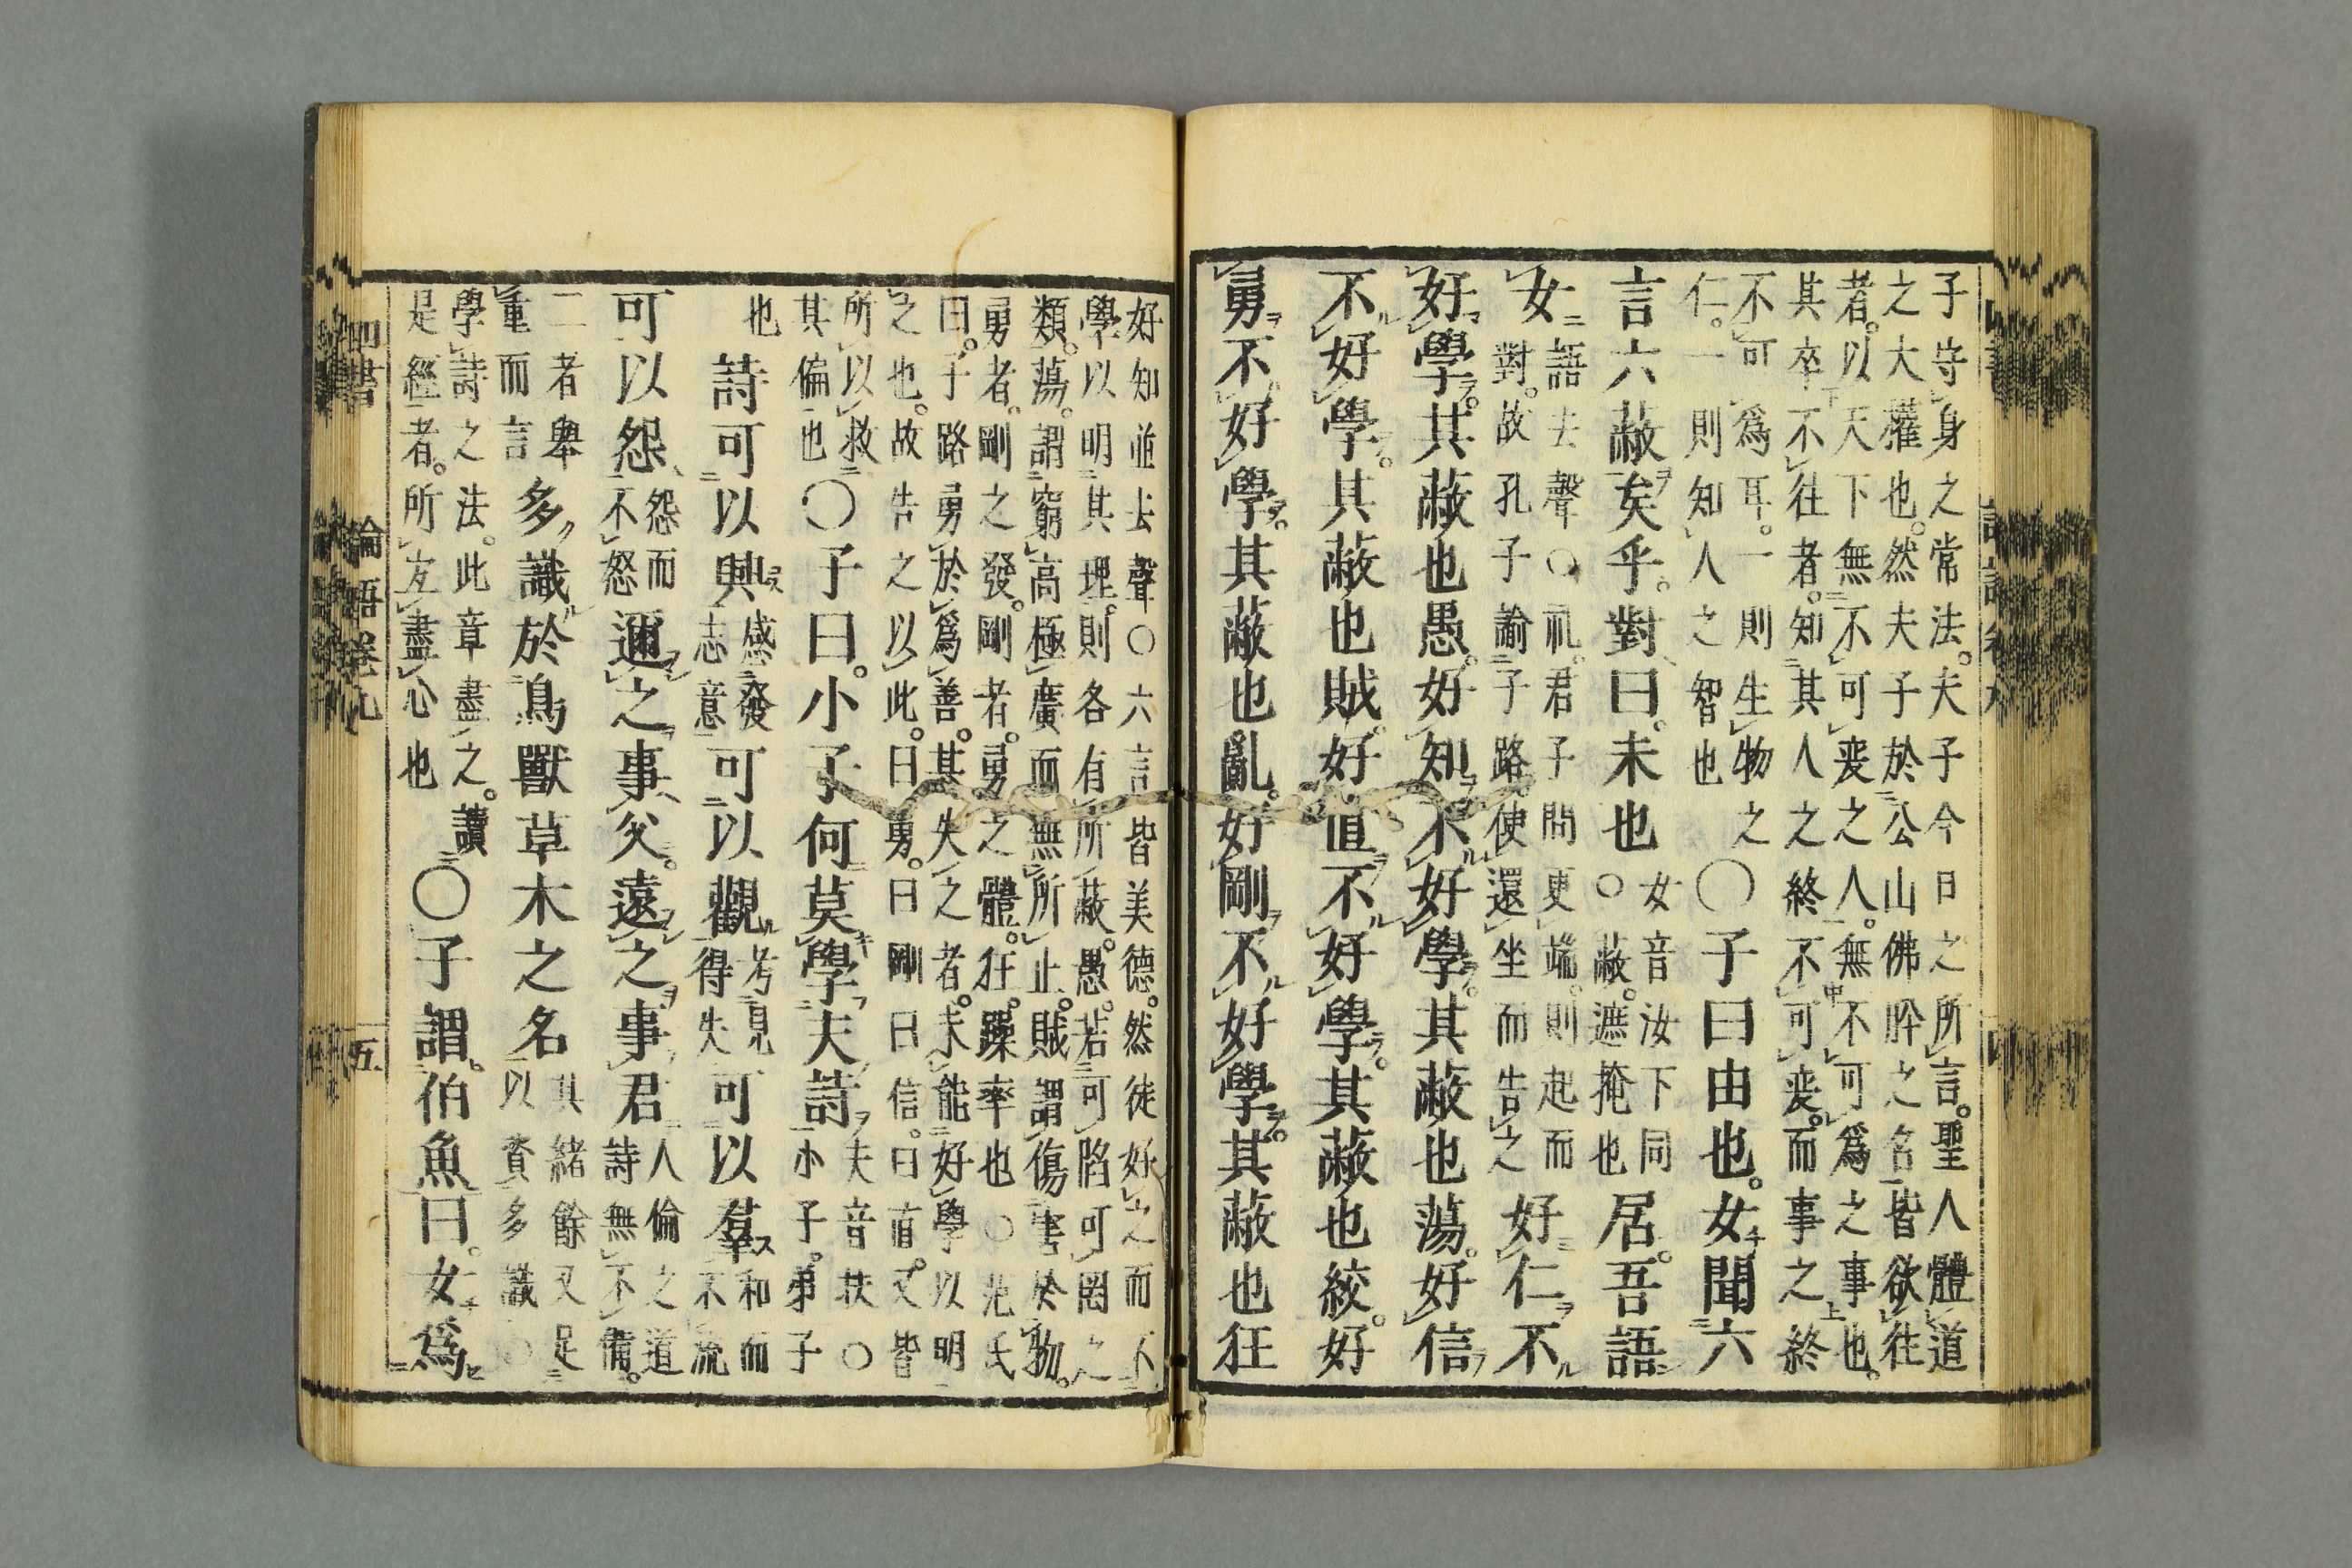 子守身之常法。夫子今日之所言。聖人體道
之大權也。然夫子於公山佛肸之名皆欲往
者。以天下無不可變之人。無不可爲之事也。
其卒不往者。知其人之終不可變。而事之終
不可爲耳。一則生物之
仁。一則知人之智也
○子曰由也。女聞六
言六蔽矣乎。對曰。未也
女音汝下同
○蔽。遮掩也
居。吾語
女
語去聲○禮。君子問更端。則起而
對。故孔子諭子路使還坐而告之
好仁不
好學。其蔽也愚。好知不好學。其蔽也蕩。好信
不好學。其蔽也賊。好直不好學。其蔽也絞。好
勇不好學。其蔽也亂。好剛不好學。其蔽也狂
好知並去聲○六言皆美德。然徒好之而不
學以明其理。則各有所蔽。愚。若可陷可罔之
類。蕩。謂窮高極廣而無所止。賊。謂傷害於物。
勇者。剛之發。剛者。勇之體。狂。躁率也○范氏
曰。子路勇於爲善。其失之者。未能好學以明
之也。故告之以此。曰勇。曰剛曰信。曰直。又皆
所以救
其偏也
○子曰。小子何莫學夫詩
夫音扶○
小子。弟子
也
詩可以興
感發
志意
可以觀
考見
得失
可以羣
和而
不流
可以怨
怨而
不怒
邇之事父。遠之事君
人倫之道
詩無不備。
二者舉
重而言
多識於鳥獸草木之名
其緖餘又足
以資多識○
學詩之法。此章盡之。讀
是經者。所宜盡心也
○子謂。伯魚曰。女爲
四書
論語卷九
五